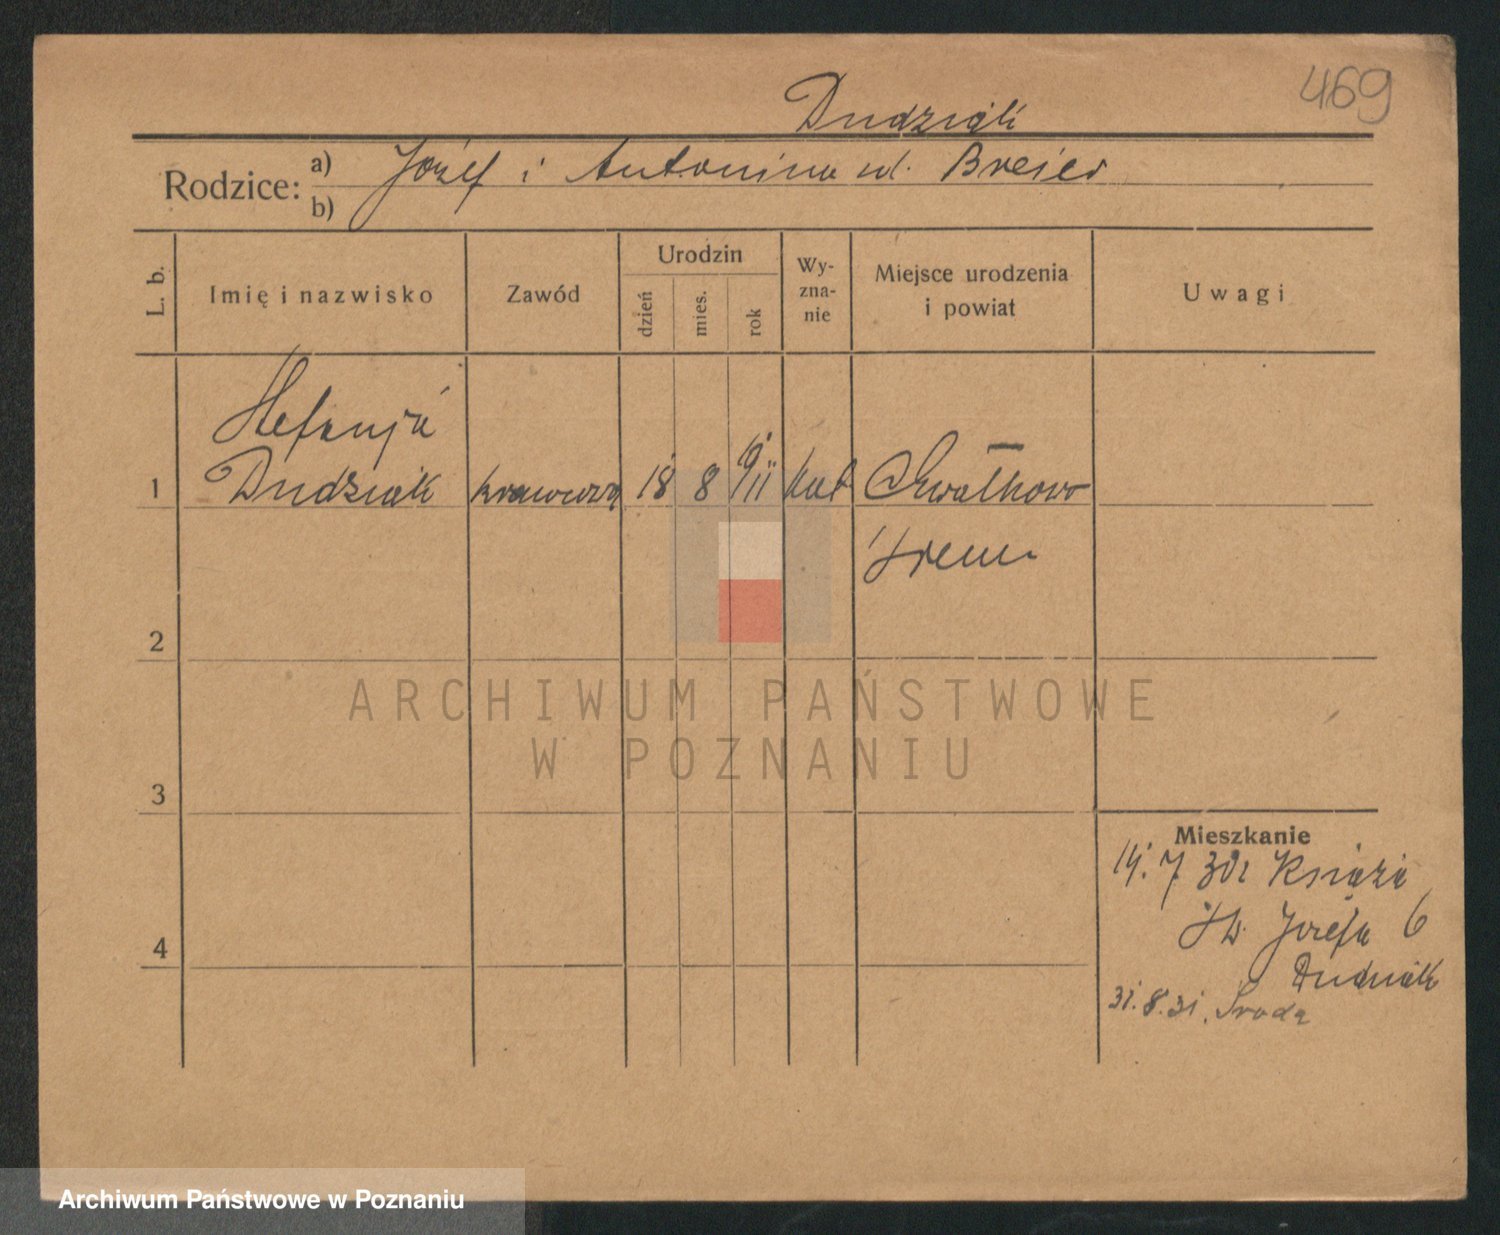 469
Dudziak
Rodzice: a) Józef i Antonina ul. Breier
b)
L. b.
Imię i nazwisko
Zawód
Urodzin
dzień
mies.
rok
Wy-
zna-
nie
Miejsce urodzenia
i powiat
Uwagi
Stefanja
1 Dudziak krawcowa 18 8 911 kat
Śrem
2
ARCHIWUM PAŃSTWOWE
W POZNANIU
3
Mieszkanie
14. 7 30 Książa
Józefa 6
4
Dudziak
31.8.31. Środa
Archiwum Państwowe w Poznaniu